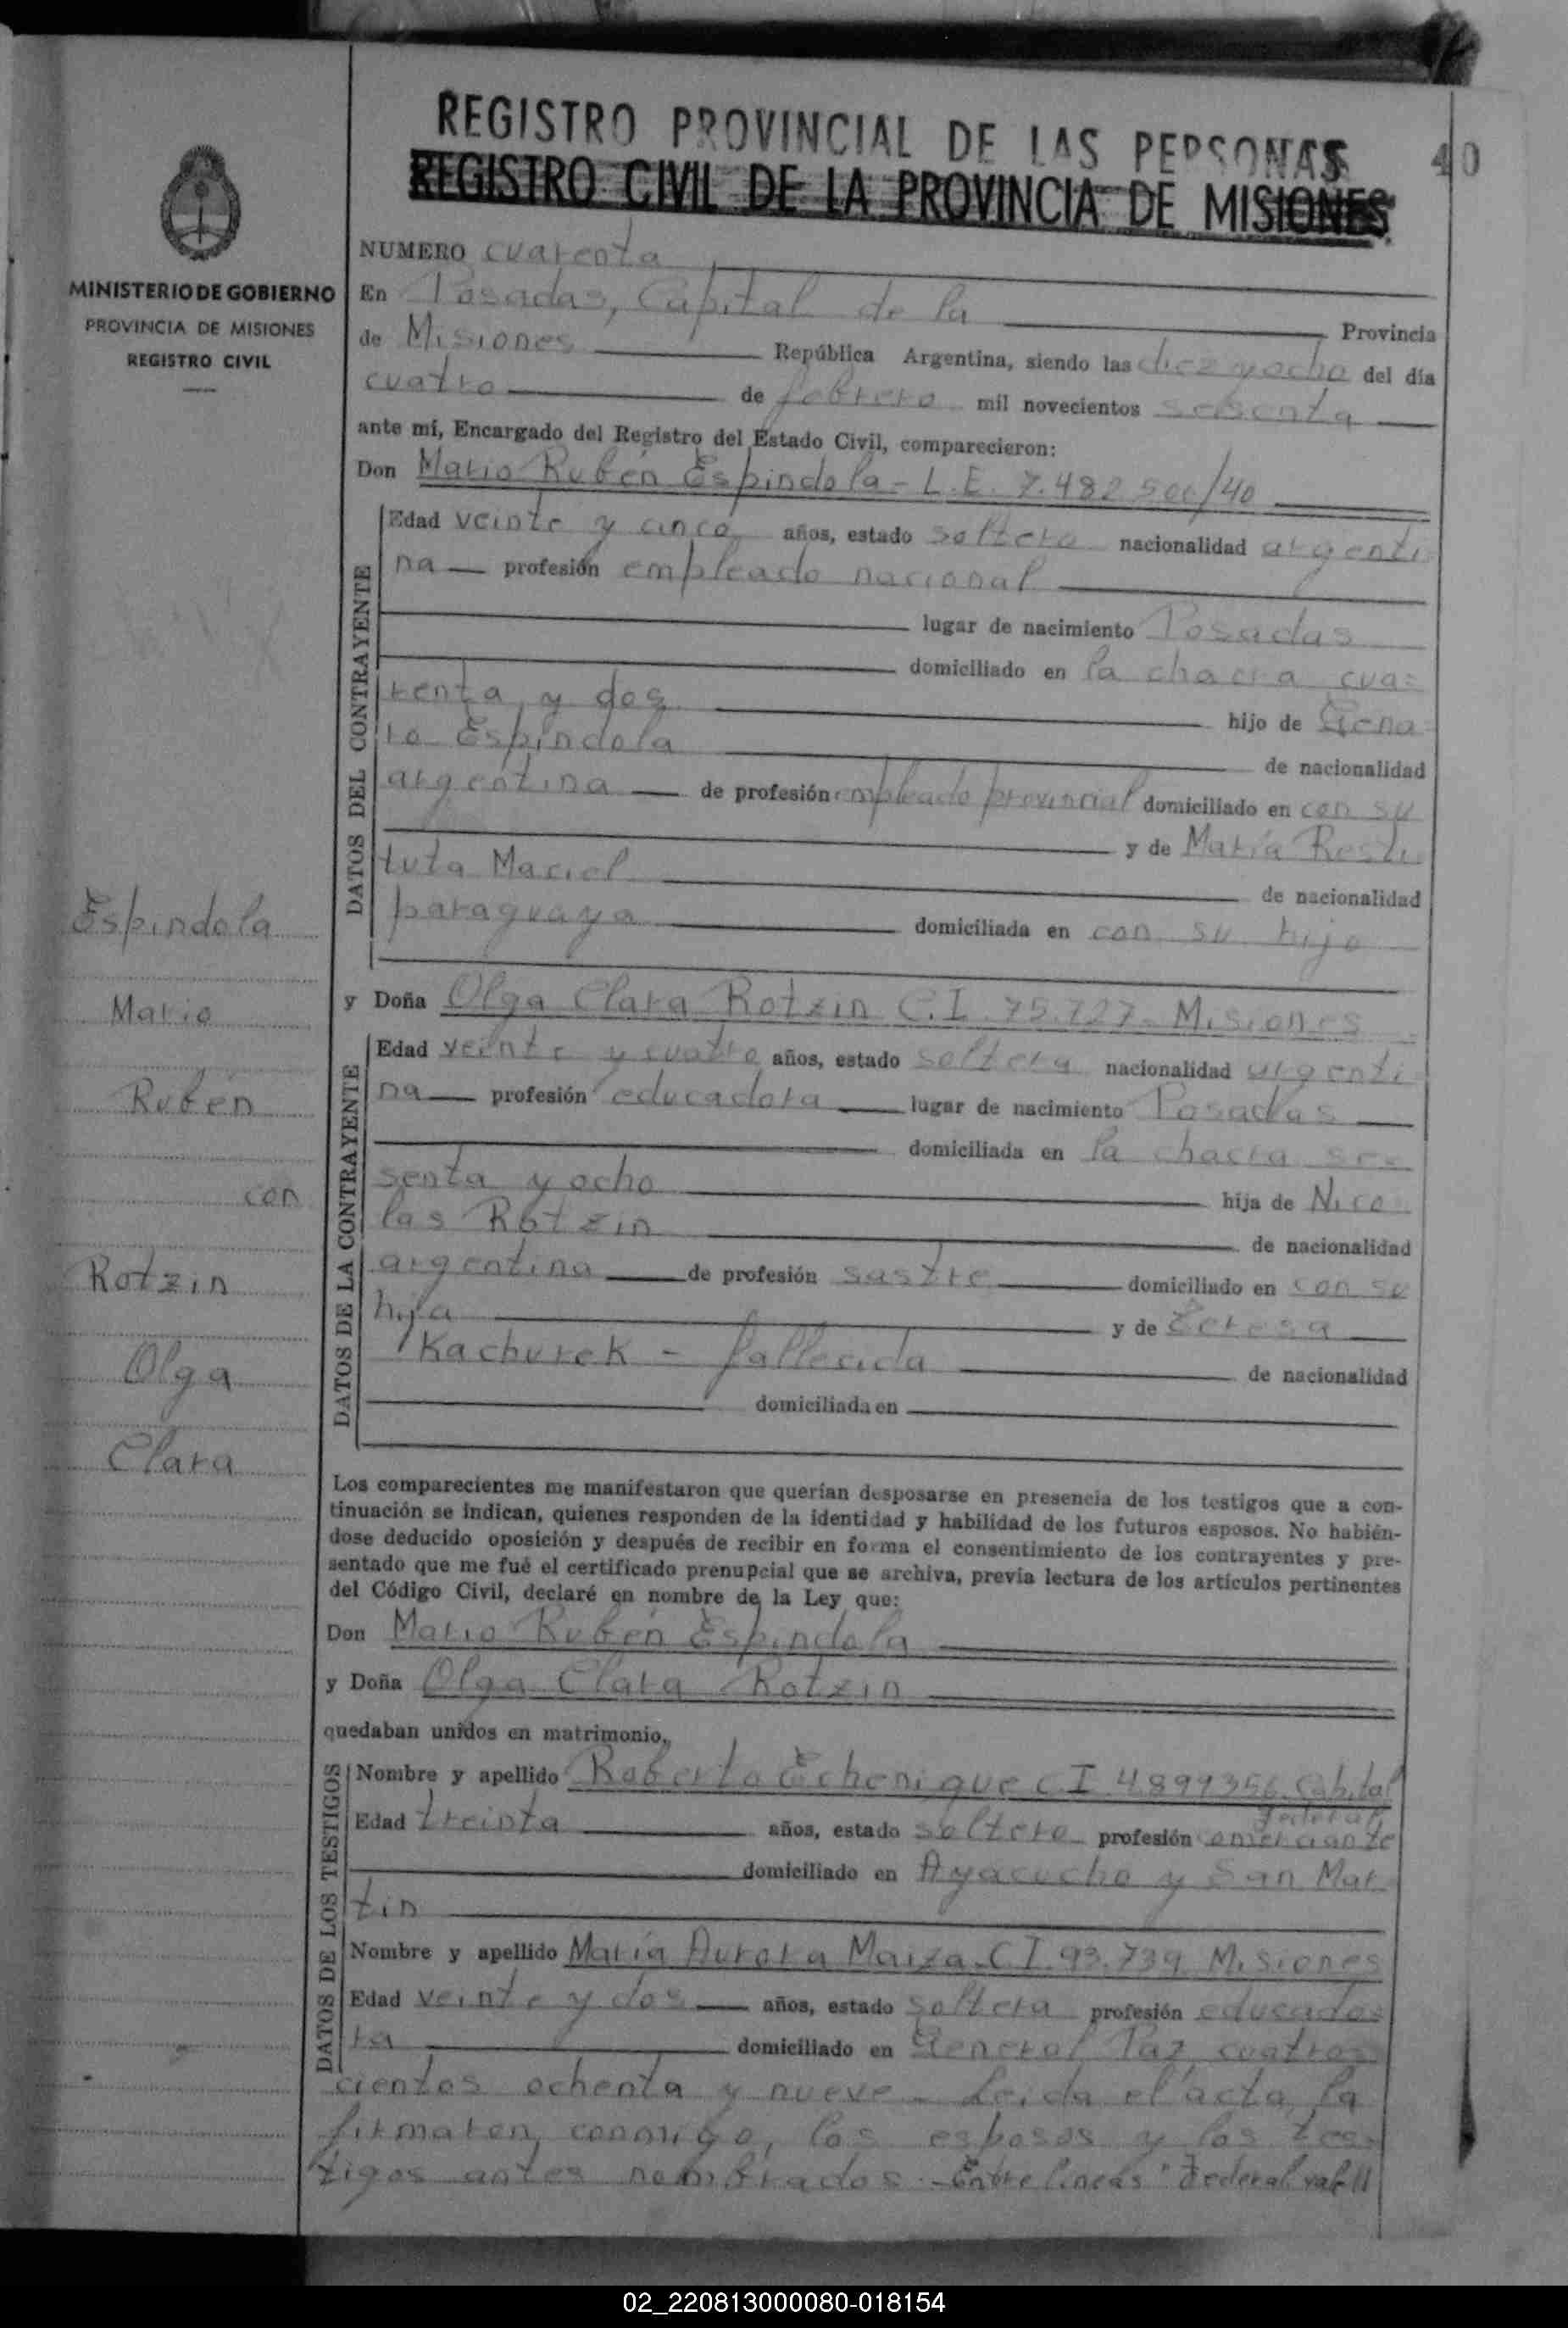 REGISTRO PROVINCIAL DE LAS PERSONAS
40
REGISTRO CIVIL DE LA PROVINCIA DE MISIONES
MINISTERIO DE GOBIERNO
PROVINCIA DE MISIONES
REGISTRO CIVIL
Espindola
Mario
Rubén
con
Rotzin
Olga
Clara
NUMERO cuarenta
En Posadas, Capital de la Provincia
de Misiones República Argentina, siendo las diez y ocho del día
cuatro de febrero mil novecientos sesenta
ante mí, Encargado del Registro del Estado Civil, comparecieron:
Don Mario Rubén Espindola - L.E. 7.482.500/40
DATOS DEL CONTRAYENTE
Edad veinte y cinco años, estado soltero nacionalidad argenti
na profesión empleado nacional
lugar de nacimiento Posadas
domiciliado en la chacra cua=
renta y dos hijo de Gena=
ro Espindola de nacionalidad
argentina de profesión empleado provincial domiciliado en con su
y de María Resti
tuta Maciel de nacionalidad
paraguaya domiciliada en con su hijo
y Doña Olga Clara Rotzin C.I. 75.727 - Misiones
DATOS DE LA CONTRAYENTE
Edad veinte y cuatro años, estado soltera nacionalidad argenti
na profesión educadora lugar de nacimiento Posadas
domiciliada en la chacra se=
senta y ocho hija de Nico
las Rotzin de nacionalidad
argentina de profesión sastre domiciliado en con su
hija y de Teresa
Kachurek - fallecida de nacionalidad
domiciliada en
Los comparecientes me manifestaron que querían desposarse en presencia de los testigos que a con-
tinuación se indican, quienes responden de la identidad y habilidad de los futuros esposos. No habién-
dose deducido oposición y después de recibir en forma el consentimiento de los contrayentes y pre-
sentado que me fué el certificado prenupcial que se archiva, previa lectura de los artículos pertinentes
del Código Civil, declaré en nombre de la Ley que:
Don Mario Rubén Espindola
y Doña Olga Clara Rotzin
quedaban unidos en matrimonio.
DATOS DE LOS TESTIGOS
Nombre y apellido Roberto Echenique C.I. 4.899356 Capital
Federal
Edad treinta años, estado soltero profesión comerciante
domiciliado en Ayacucho y San Mar
tin
Nombre y apellido María Aurora Maiza - C.I. 93.739 Misiones
Edad veinte y dos años, estado soltera profesión educado=
ra domiciliado en General Paz cuatros
cientos ochenta y nueve - Leida el acta, la
firmaron conmigo, los esposos y los tes=
tigos antes nombrados. - Entre lineas "Federal vale"
02_220813000080-018154